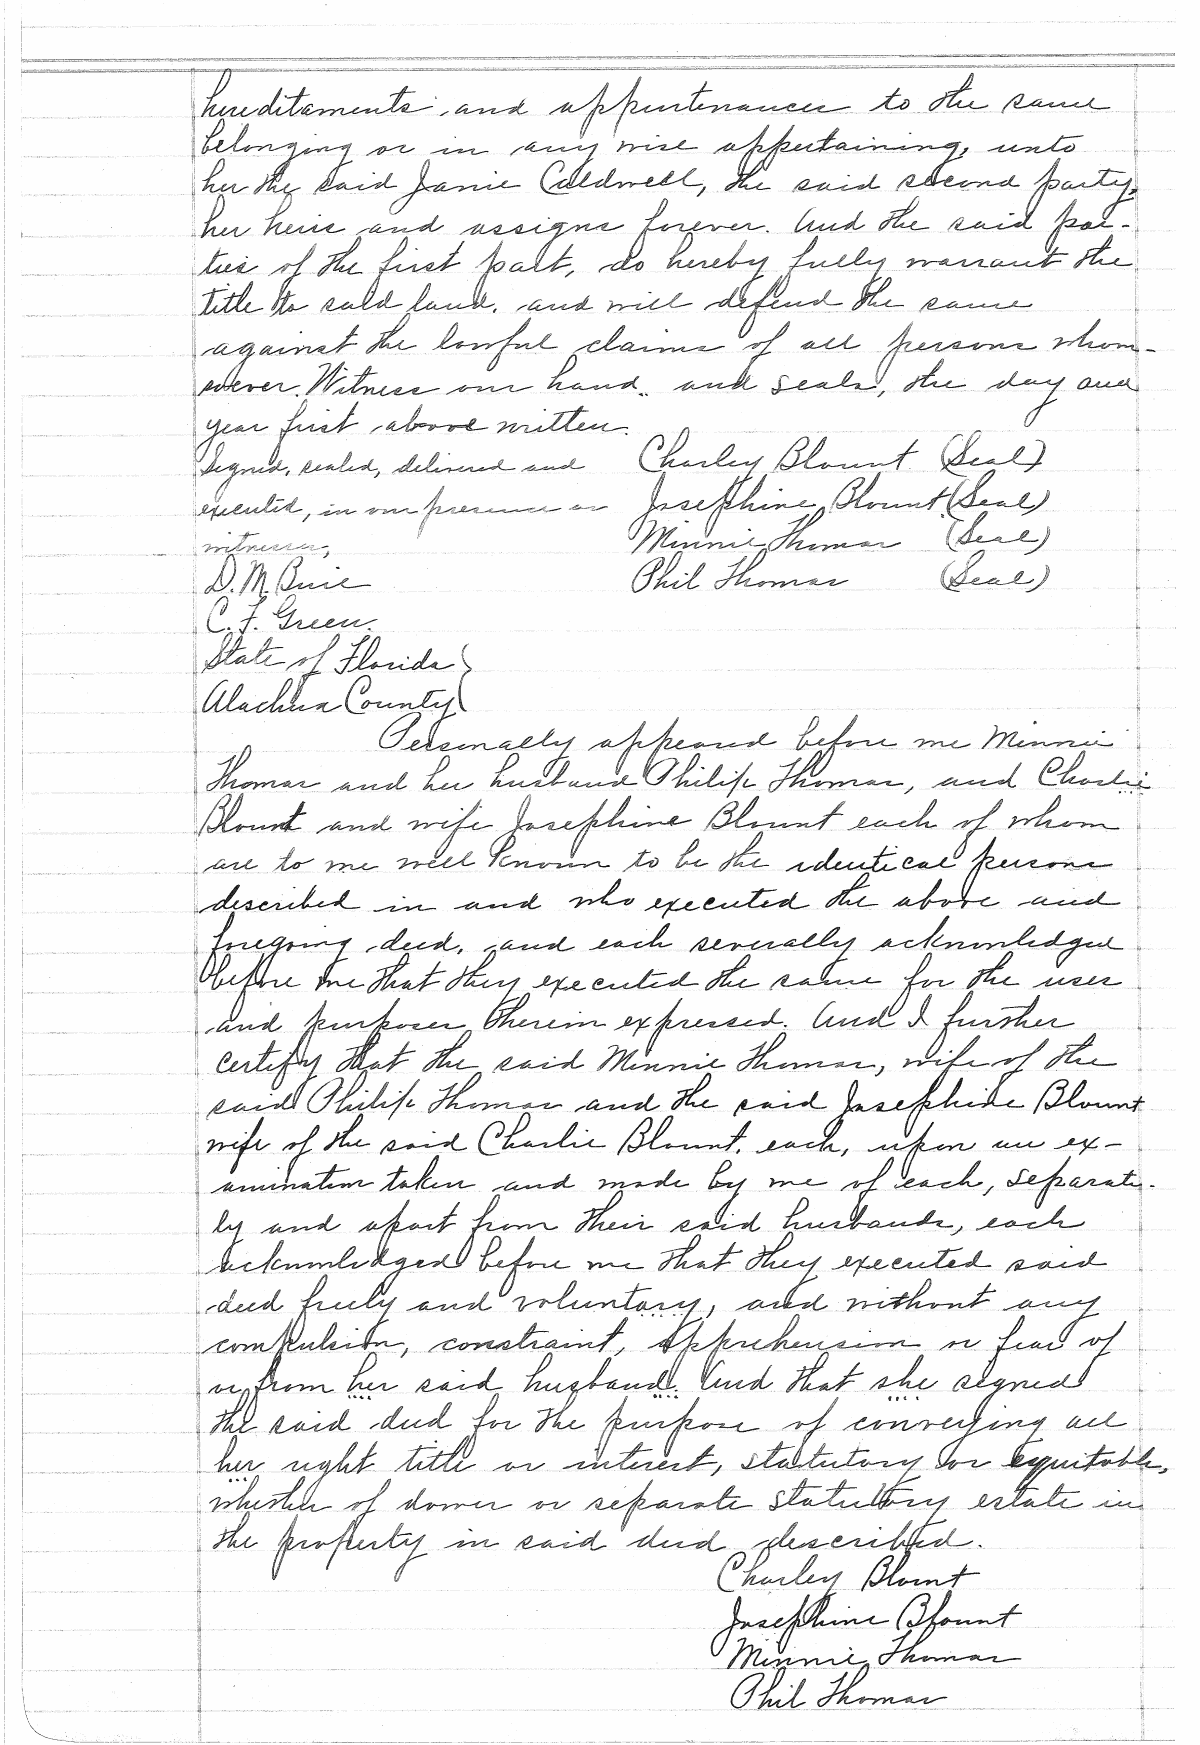 hereditaments and appurtenances to the same
belonging or in any wise appertaining, unto
her the said Janie Caldwell, the said second party,
her heirs and assigns forever. And the said par-
ties of the first part, do hereby fully warrant the
title to said land, and will defend the same
against the lawful claims of all persons whom-
soever. Witness our hand and seals, the day and
year first above written.
Signed, sealed, delivered and Charley Blount (Seal)
executed, in our presence as Josephine Blount (Seal)
witnesses, Minnie Thomas (Seal)
D. M. Buie Phil Thomas (Seal)
C. F. Green.
State of Florida }
Alachua County }
Personally appeared before me Minnie
Thomas and her husband Philip Thomas, and Charlie
Blount and wife Josephine Blount each of whom
are to me well known to be the identical persons
described in and who executed the above and
foregoing deed, and each severally acknowledged
before me that they executed the same for the uses
and purposes therein expressed. And I further
certify that the said Minnie Thomas, wife of the
said Philip Thomas and the said Josephine Blount
wife of the said Charlie Blount, each, upon an ex-
amination taken and made by me of each, separate-
ly and apart from their said husbands, each
acknowledged before me that they executed said
deed freely and voluntary, and without any
compulsion, constraint, apprehension or fear of
or from her said husband. And that she signed
the said deed for the purpose of conveying all
her right title or interest, statutory or equitable,
whether of dower or separate statutory estate in
the property in said deed described.
Charley Blount
Josephine Blount
Minnie Thomas
Phil Thomas